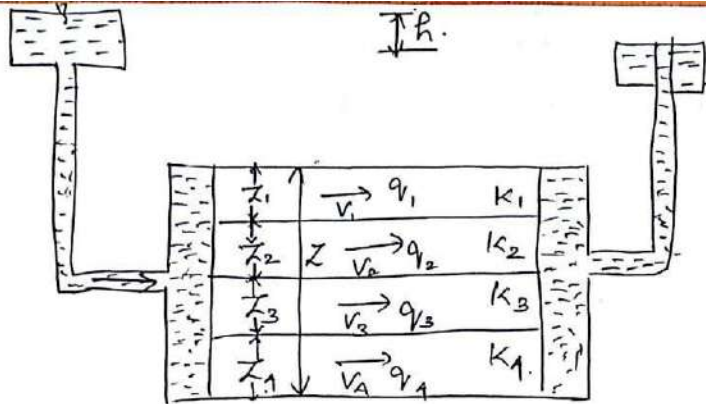 h.
Z₁ V₁ q₁ K₁
Z₂ Z V₂ q₂ K₂
Z₃ V₃ q₃ K₃
Z₄ V₄ q₄ K₄.